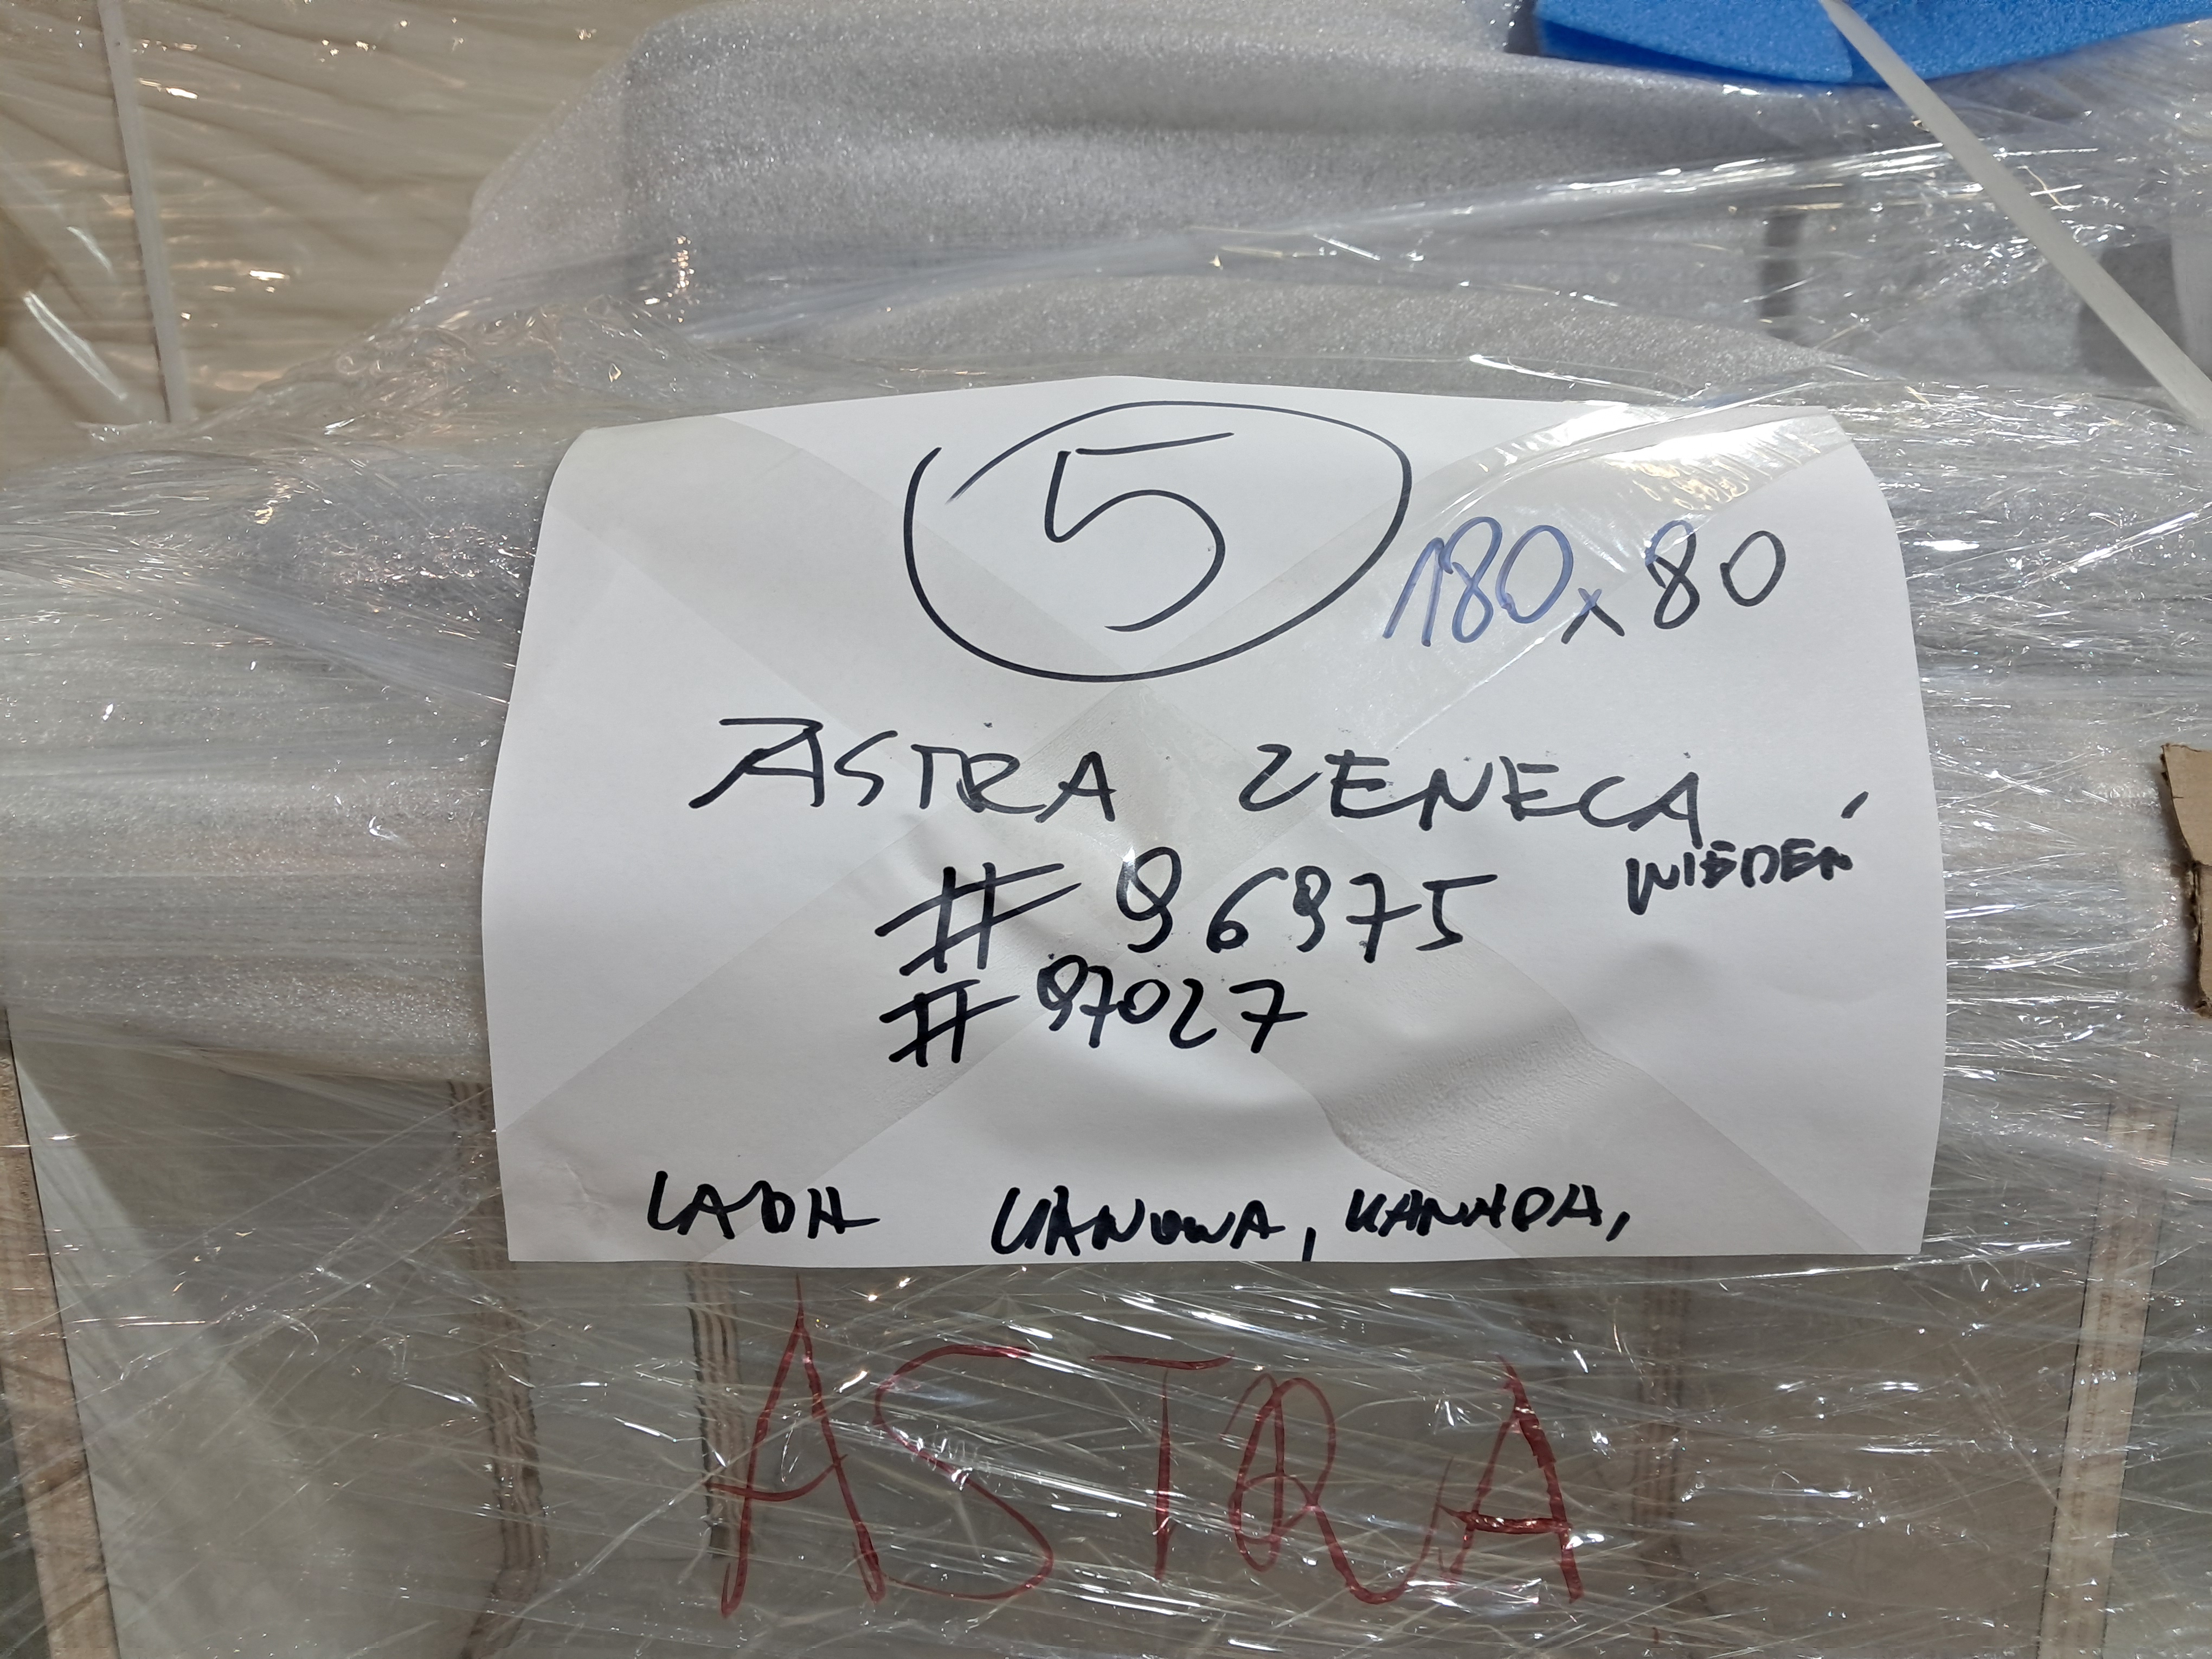 5
180x80
ASTRA ZENECA
WIEDEŃ
# 96975
# 97027
LADA LIANOWA, KANADA,
ASTRA